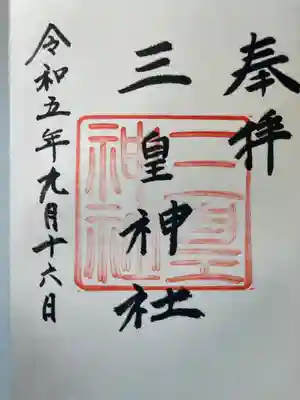 奉拝
三皇神社
令和五年九月十六日
三皇神社